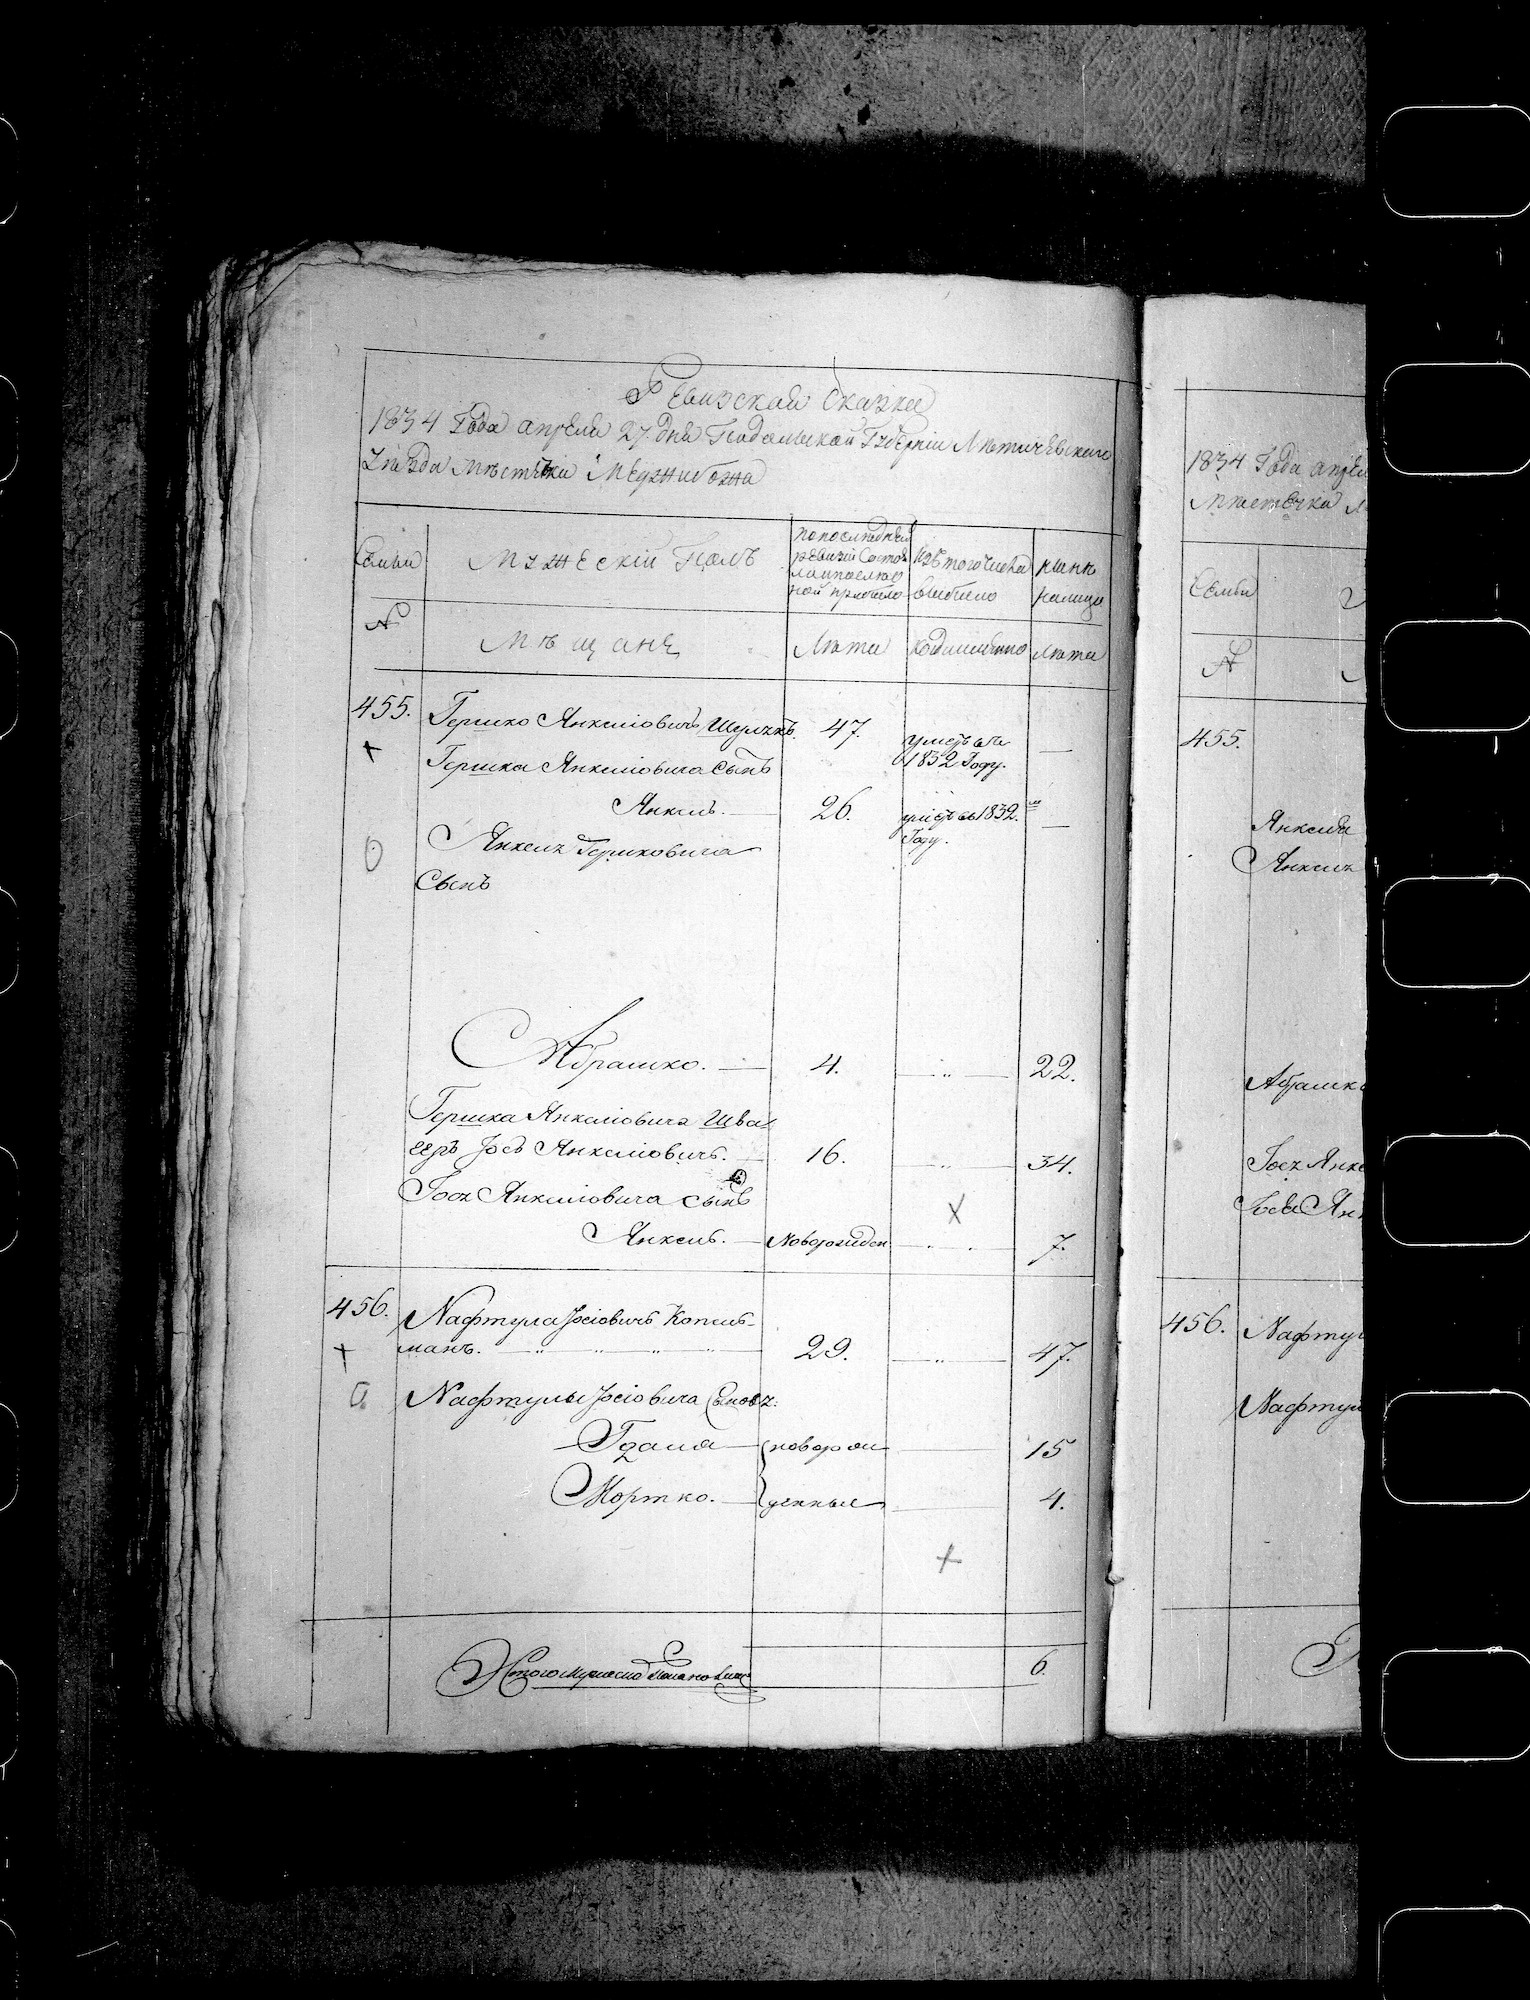 Ревизская сказка
1834 Года апреля 27 дня Подольской Губернiи Лѣтичевскаго
уѣзда мѣстѣчка Меджибожа
Семьи
Мужескiй Полъ
по последней
ревизiи состо
яло и после
ной прибыло
Изъ того числа
выбыло
нынѣ
налицо
№
Мѣщане
Лѣта
когда имянно
лѣта
455. Гершко Янкелiовичъ Шуликъ. 47. умеръ въ
1832 Году. —
Гершка Янкелiовича сынъ
Янкель. — 26. умеръ въ 1832. —
Году.
Янкеля Гершковича
сынъ
Абрашко. — 4. 22.
Гершка Янкелiовича Шва-
геръ Iось Янкелiовичъ. — 16. 34.
Iося Янкелiовича сынъ
Янкель. — Новорожден. 7.
456. Нафтула Iосiовичъ Копель-
манъ. 29. 47.
Нафтулы Iосiовича Сыновья:
Гдаля — новорож 15
Мортко. — денные 4.
Итого мужеска пола на лицо 6.
1834 Года апрел
Мѣстечка М
Семьи
№
455.
Янкеля
Янкеля
Абрашк
Iося Янке
Iося Ян
456. Нафтул
Нафтул